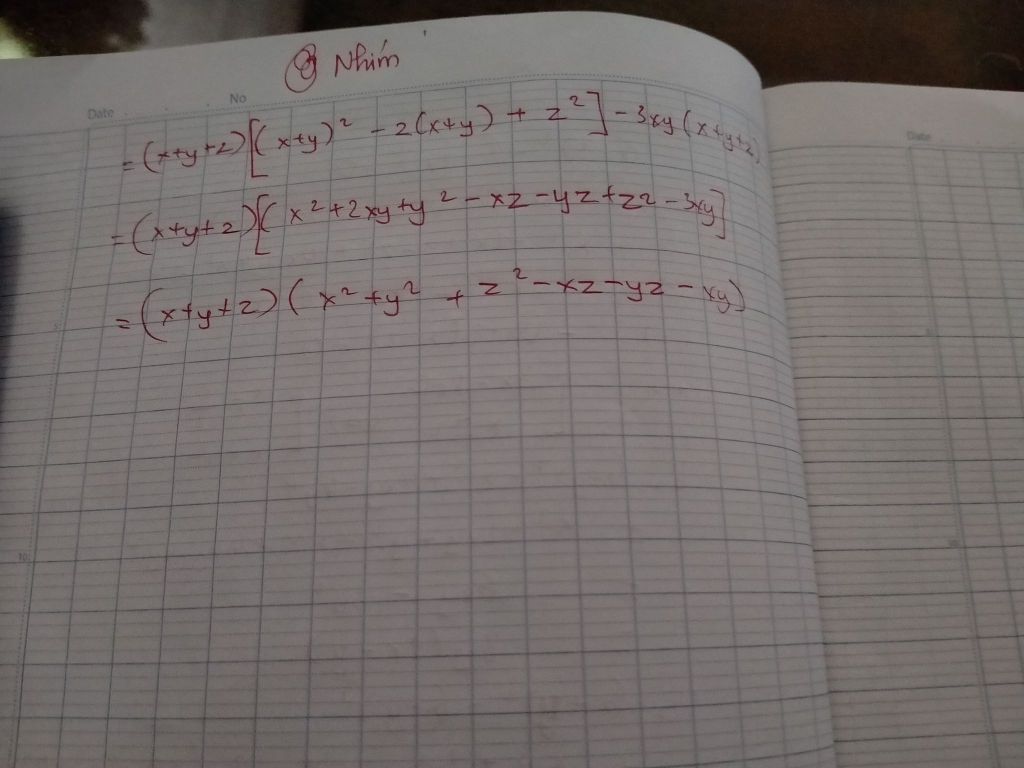 Nhím
Date No
= (x+y+z)[(x+y)² - z(x+y) + z²] - 3xy(x+y+z)
Date
= (x+y+z)[(x²+2xy+y² - xz - yz + z² - 3xy]
= (x+y+z)(x² + y² + z² - xz - yz - xy)
10